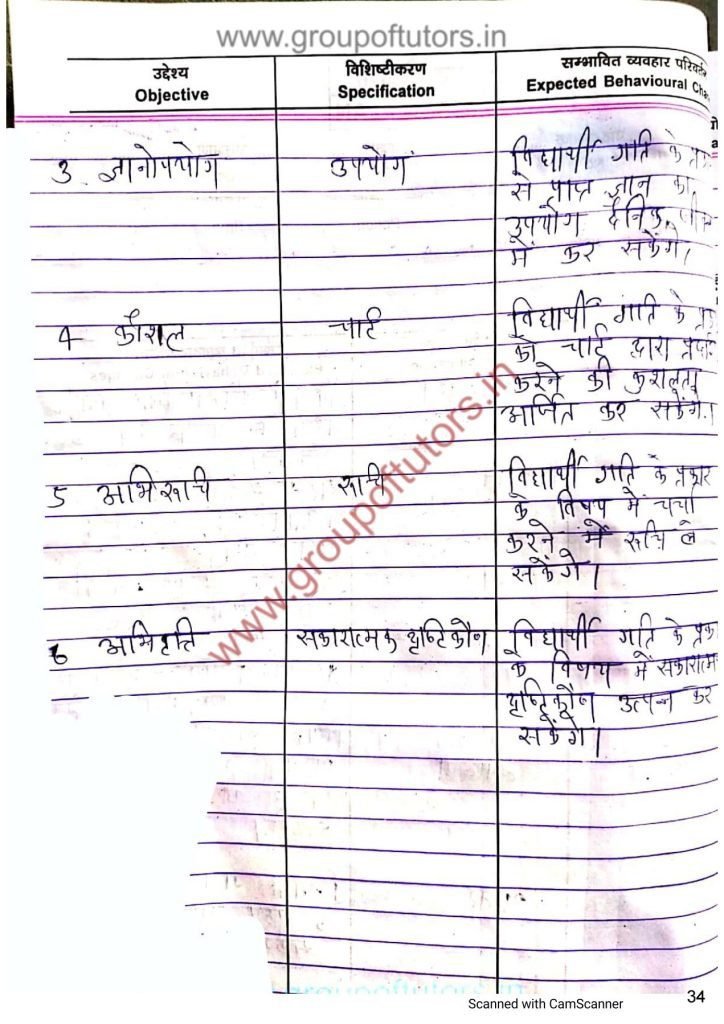 www.groupoftutors.in
उद्देश्य
Objective
विशिष्टीकरण
Specification
सम्भावित व्यवहार
Expected Behavioural
3 ज्ञानोपयोग
उपयोग
विद्यार्थी गति के
से प्राप्त ज्ञान का
उपयोग दैनिक
में कर सकेंगे।
4 कौशल
चार्ट
विद्यार्थी गति के
को चार्ट द्वारा
करने की कुशलता
अर्जित कर सकेंगे।
5 अभिरूचि
रूचि
विद्यार्थी गति के प्रकार
के विषय में चर्चा
करने में रूचि ले
सकेंगे।
6 अभिवृत्ति
सकारात्मक दृष्टिकौन
विद्यार्थी गति के
के विषय में
दृष्टिकौन उत्पन्न कर
सकेंगे।
www.groupoftutors.in
34
Scanned with CamScanner